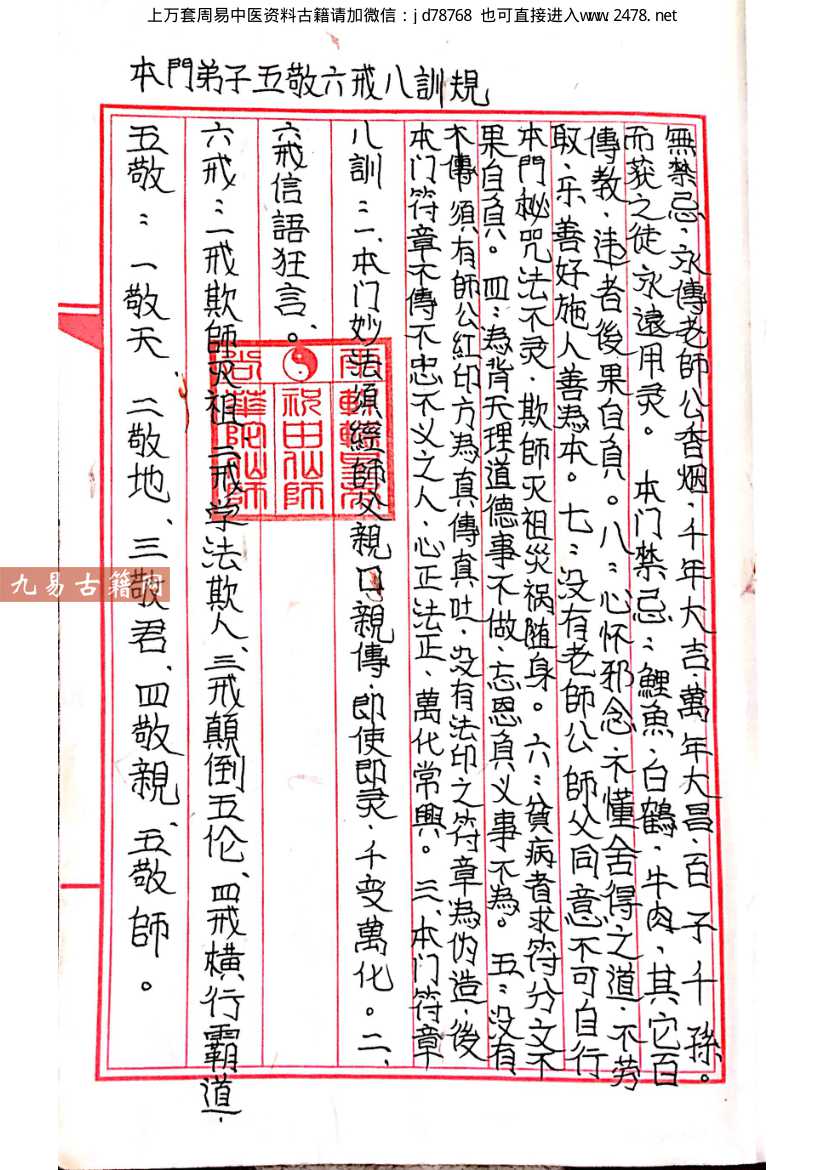 上万套周易中医资料古籍请加微信：jd78768 也可直接进入www.2478.net
本門弟子五敬六戒八訓規
五敬：一敬天 二敬地、三敬君、四敬親、五敬師。
六戒：一戒欺師灭祖、二戒学法欺人、三戒顛倒五伦、四戒横行霸道、
六戒信語狂言、。
八訓：一、本门妙法須經師父親口親傳、即使即灵、千变萬化。二、
本门符章不傳不忠不义之人、心正法正、萬化常興。三、本门符章
不傳 須有師公紅印方為真傳真吐、没有法印之符章為伪造、後
果自負。四：為背天理道德事不做、忘恩負义事不為。五：没有
本門秘咒法不灵、欺師灭祖災祸随身。六：貧病者求符分文不
取、乐善好施人善為本。七：没有老師公師父同意不可自行
傳教、违者後果自負。八：心怀邪念、不懂舍得之道、不劳
而获之徒永遠用灵。本门禁忌：鯉魚、白鶴、牛肉、其它百
無禁忌、永傳老師公香烟、千年大吉、萬年大昌、百子千孫。
祝由仙師
九易古籍网